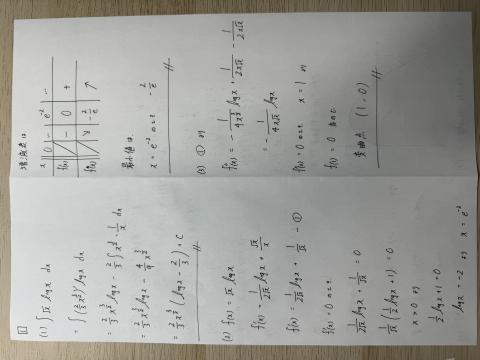 1
(1) ∫√x log x dx
= ∫(2/3 x^{3/2})' log x dx
= 2/3 x^{3/2} log x - 2/3 ∫x^{3/2}・1/x dx
= 2/3 x^{3/2} log x - 4/9 x^{3/2}
= 2/3 x^{3/2} (log x - 2/3) + C
(2) f(x) = √x log x
f'(x) = 1/2√x log x + √x/x
f'(x) = 1/2√x log x + 1/√x - ①
f'(x) = 0 のとき
1/2√x log x + 1/√x = 0
1/√x (1/2 log x + 1) = 0
x > 0 より
1/2 log x + 1 = 0
log x = -2 より x = e^{-2}
増減表は
x | 0 | … | e^{-2} | …
f'(x) | | - | 0 | +
f(x) | | ↘ | -2/e | ↗
最小値は
x = e^{-2} のとき -2/e
(3) ①より
f''(x) = - 1/4x^{3/2} log x + 1/2x√x - 1/2x√x
= - 1/4x√x log x
f''(x) = 0 のとき x = 1 より
f(x) = 0 なので
変曲点 (1, 0)